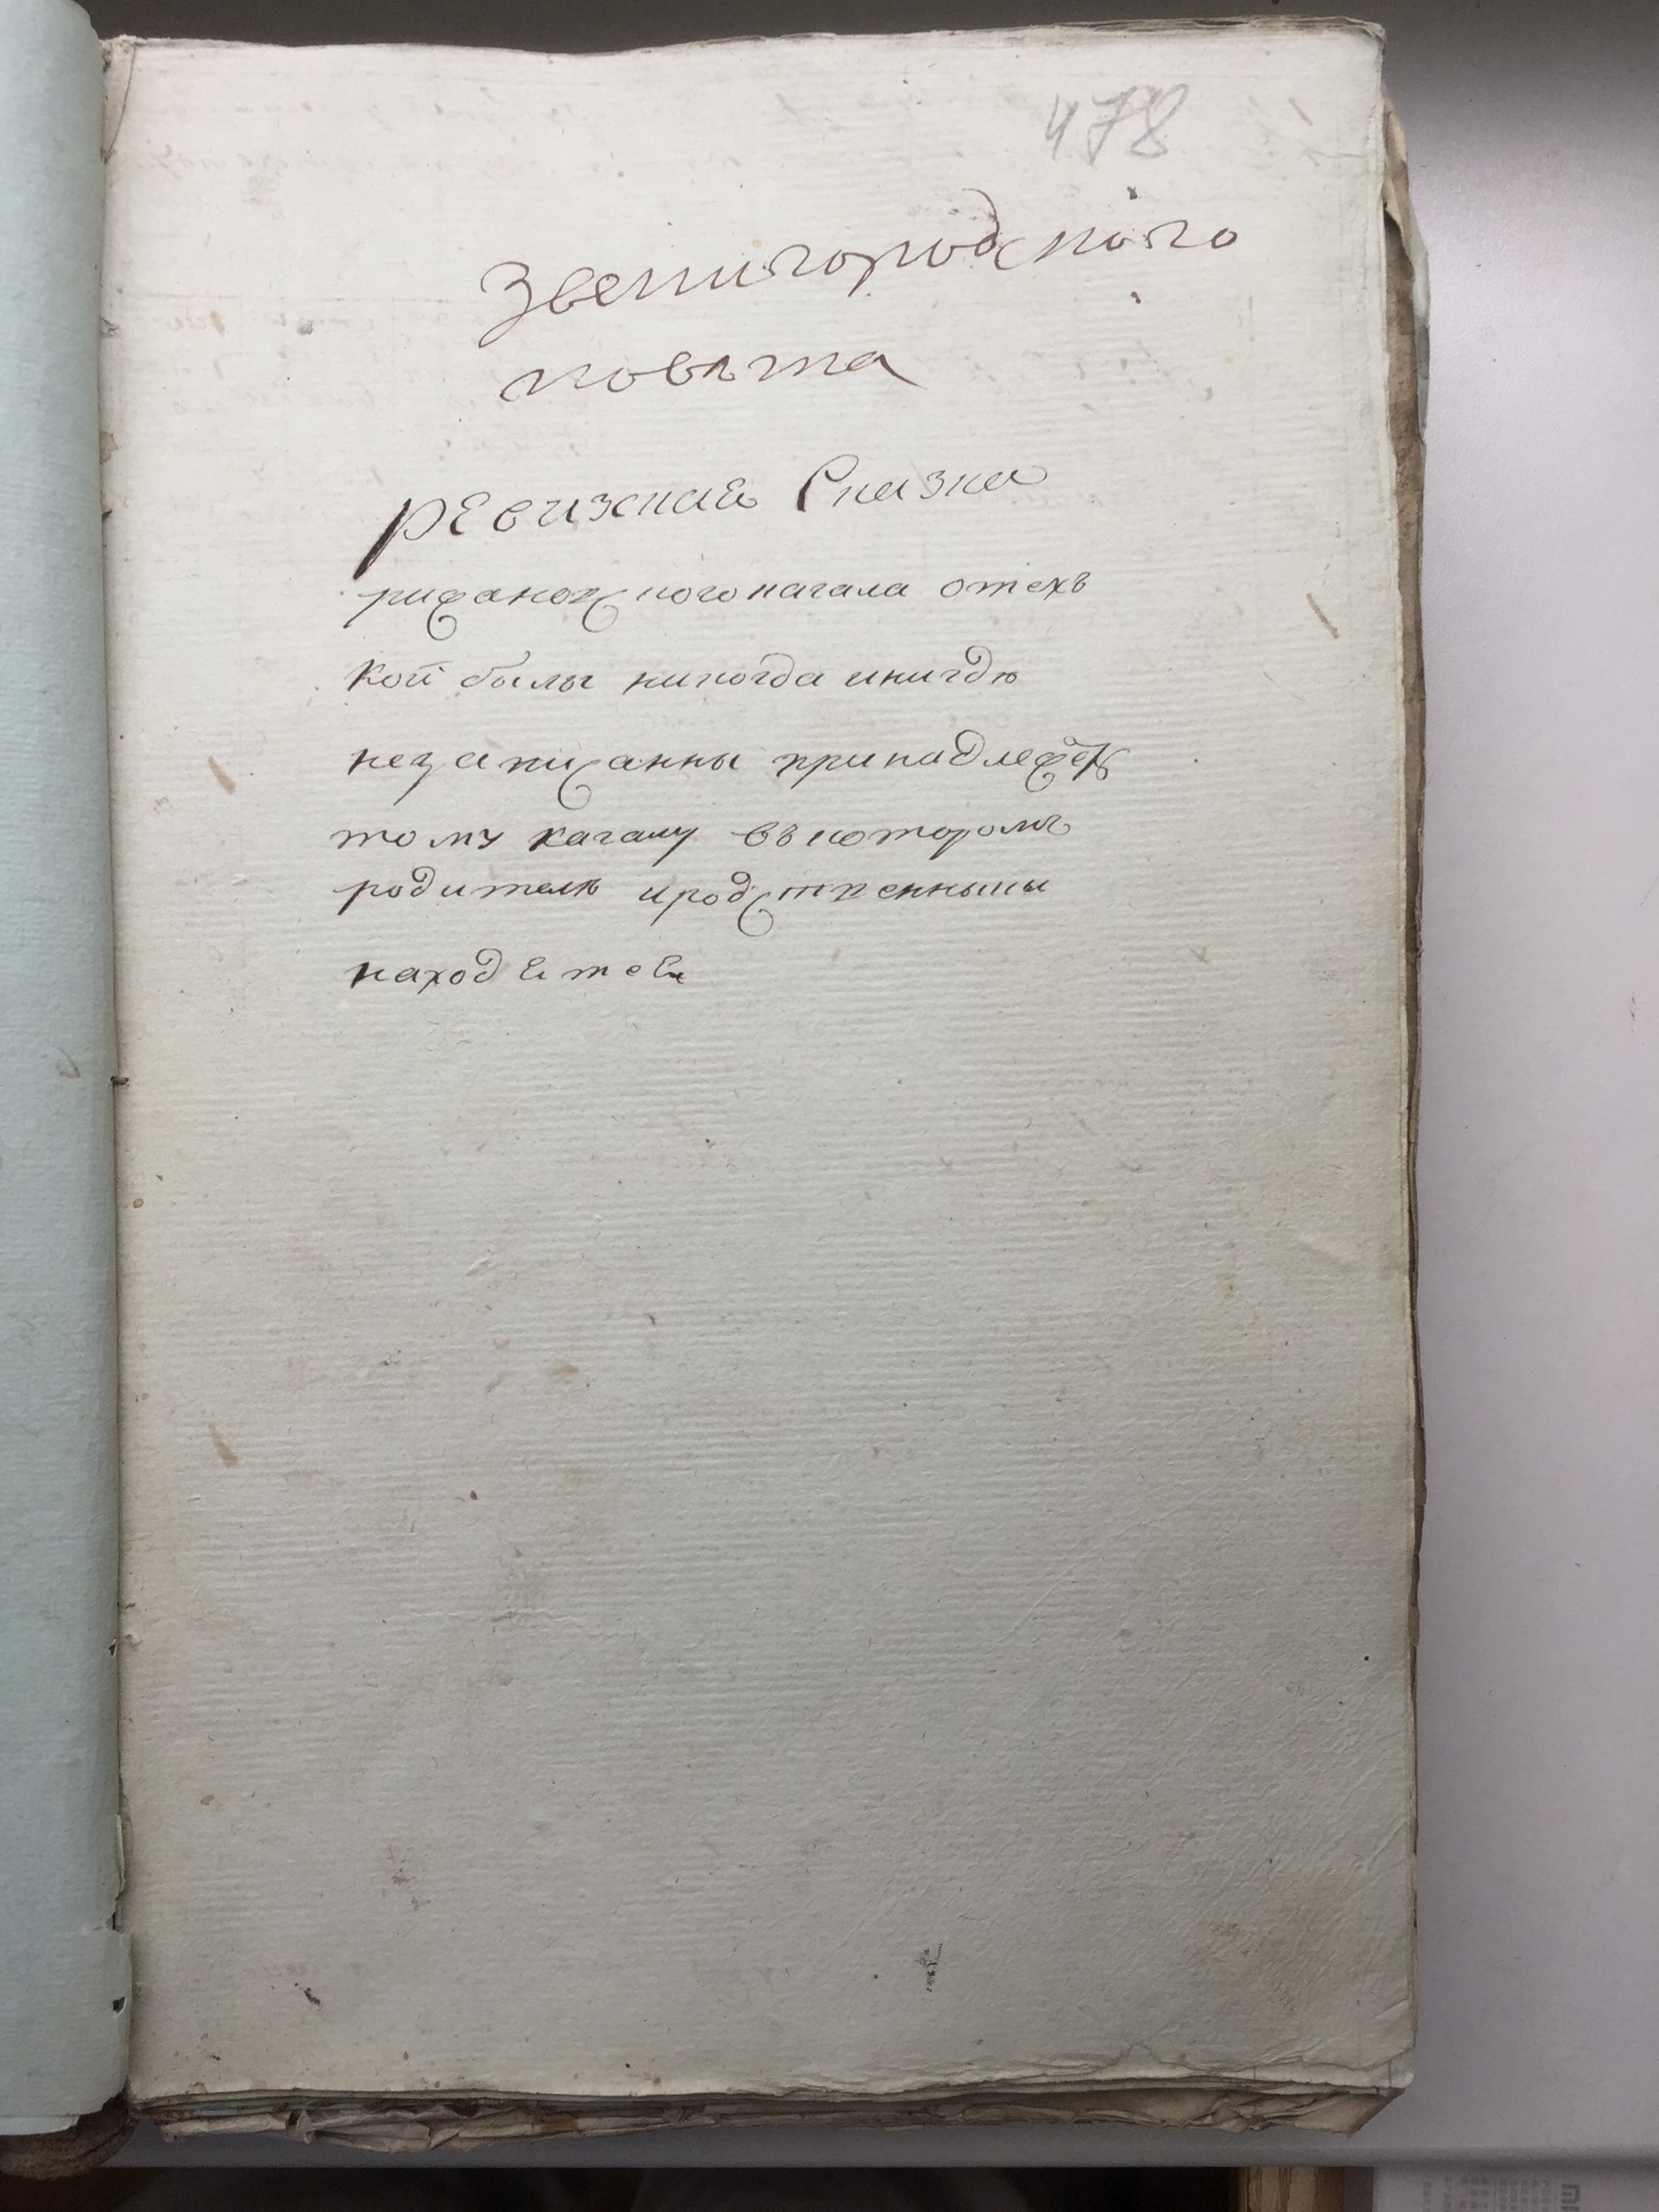 478
Звенигородского
повѣта
ревижская Сказка
рижановского кагала о техъ
кой былы никогда инигдѣ
незаписанны принадлежатъ
тому кагалу въ которомъ
родителѣ иродственныки
находятся